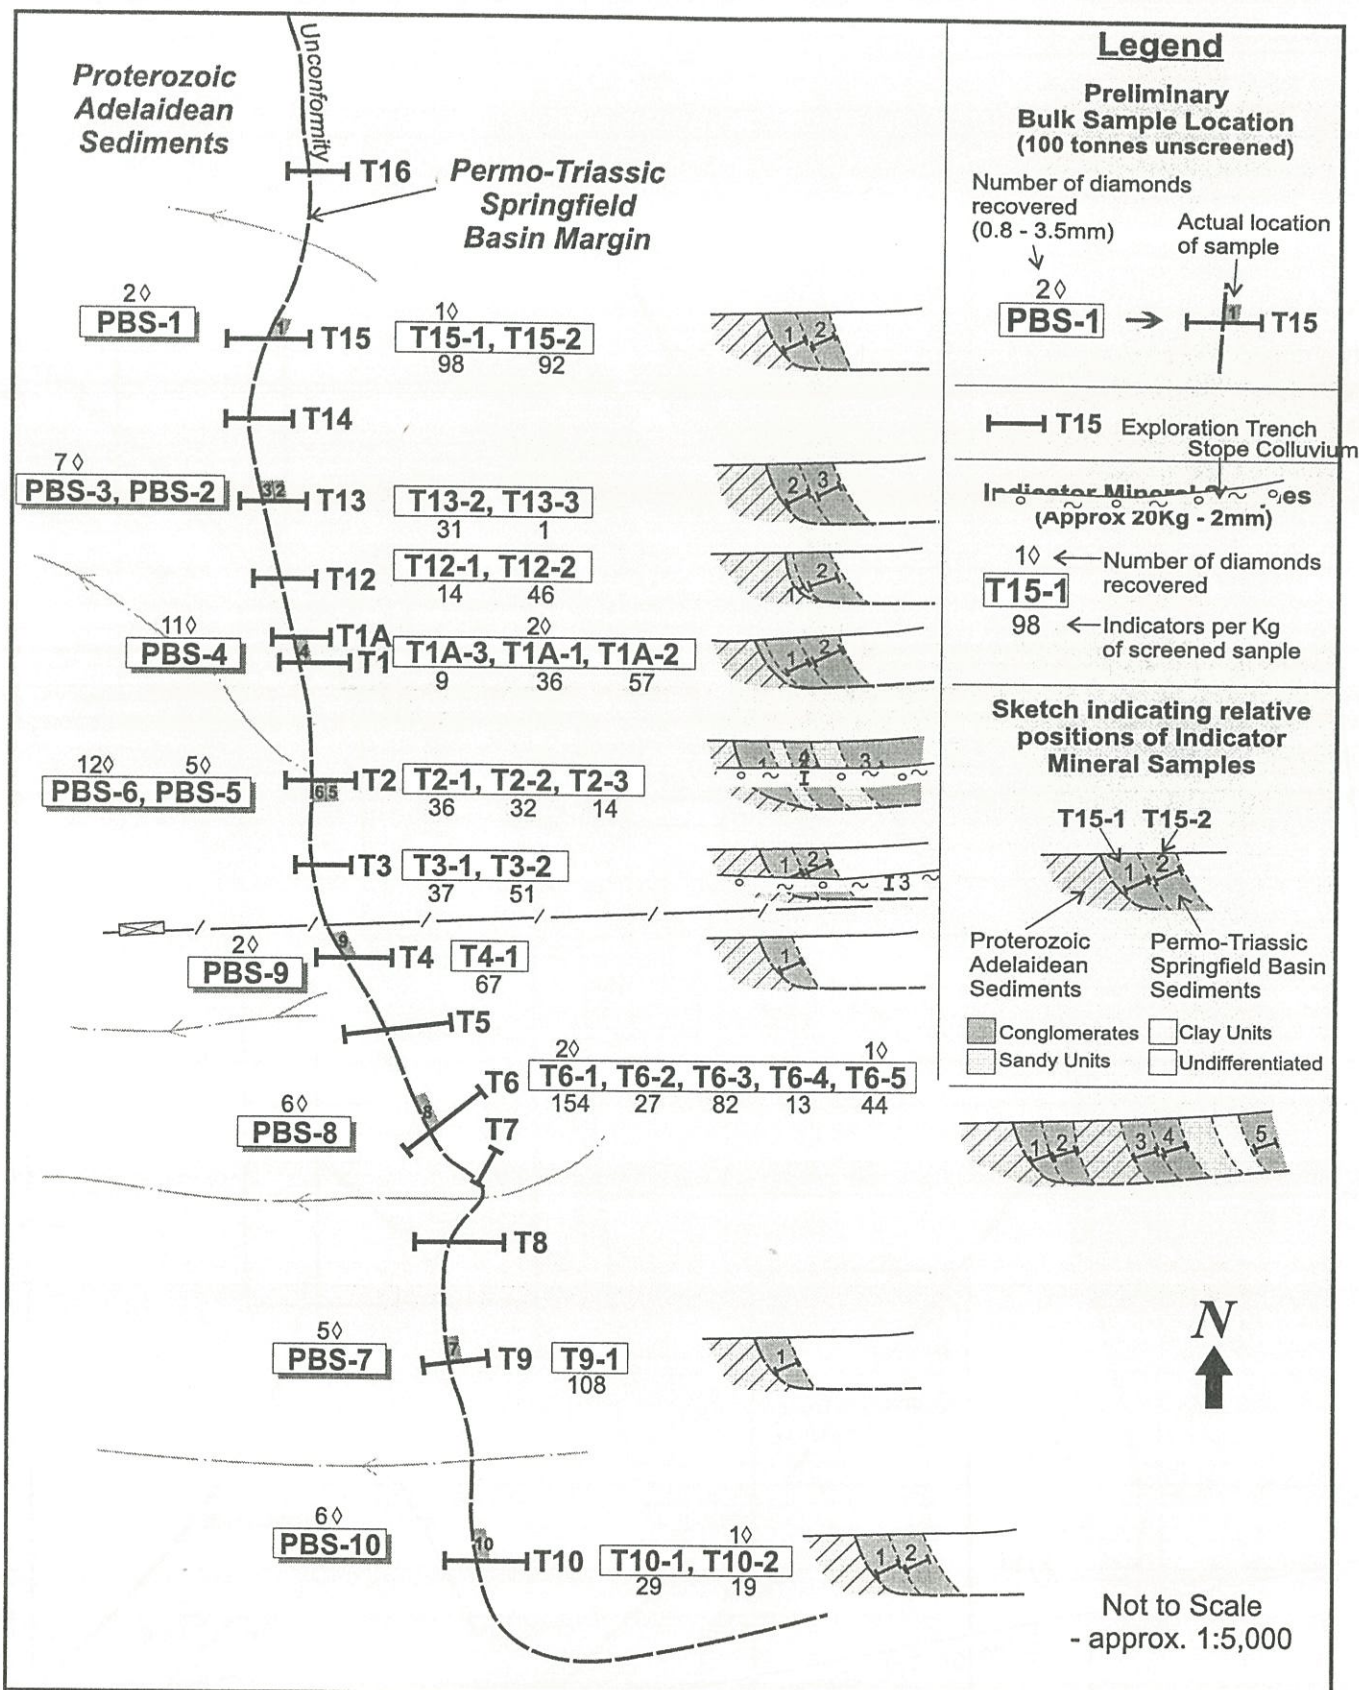 Unconformity
Proterozoic
Adelaidean
Sediments
T16
Permo-Triassic
Springfield
Basin Margin
2◊
PBS-1
1
T15
1◊
T15-1, T15-2
98 92
1 2
T14
7◊
PBS-3, PBS-2
3 2
T13
T13-2, T13-3
31 1
2 3
T12
T12-1, T12-2
14 46
1 2
11◊
PBS-4
4
T1A
T1
2◊
T1A-3, T1A-1, T1A-2
9 36 57
1 2
12◊ 5◊
PBS-6, PBS-5
6 5
T2
T2-1, T2-2, T2-3
36 32 14
T3
T3-1, T3-2
37 51
1 2
I3
2◊
PBS-9
9
T4
T4-1
67
1
T5
T6
2◊ 1◊
T6-1, T6-2, T6-3, T6-4, T6-5
154 27 82 13 44
1 2 3 4 5
6◊
PBS-8
8
T7
T8
5◊
PBS-7
7
T9
T9-1
108
1
6◊
PBS-10
10
T10
1◊
T10-1, T10-2
29 19
1 2
Legend
Preliminary
Bulk Sample Location
(100 tonnes unscreened)
Number of diamonds
recovered
(0.8 - 3.5mm)
Actual location
of sample
2◊
PBS-1
1
T15
T15 Exploration Trench
Stope Colluvium
Indicator Mineral
(Approx 20Kg - 2mm)
1◊ Number of diamonds
recovered
T15-1
98 Indicators per Kg
of screened sanple
Sketch indicating relative
positions of Indicator
Mineral Samples
T15-1 T15-2
1 2
Proterozoic
Adelaidean
Sediments
Permo-Triassic
Springfield Basin
Sediments
Conglomerates Clay Units
Sandy Units Undifferentiated
N
Not to Scale
- approx. 1:5,000